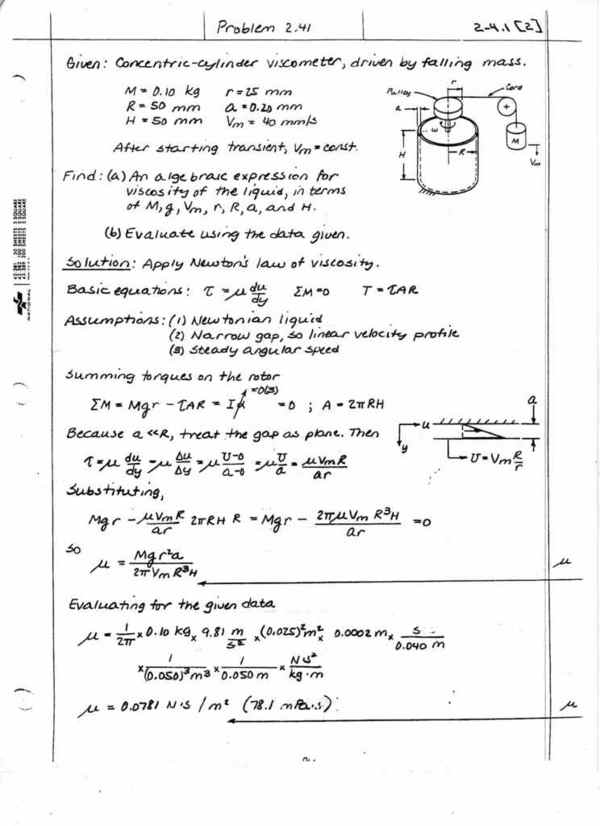 Problem 2.41
2-4.1 [2]
Given: Concentric-cylinder viscometer, driven by falling mass.
M = 0.10 kg r = 25 mm
R = 50 mm a = 0.20 mm
H = 50 mm Vm = 40 mm/s
After starting transient, Vm = const.
Pulley
r
Cord
a
ω
M
H
R
Vm
Find: (a) An algebraic expression for
viscosity of the liquid, in terms
of M, g, Vm, r, R, a, and H.
(b) Evaluate using the data given.
Solution: Apply Newton's law of viscosity.
Basic equations: τ = μ du/dy ΣM = 0 T = τAR
Assumptions: (1) Newtonian liquid
(2) Narrow gap, so linear velocity profile
(3) Steady angular speed
Summing torques on the rotor
=0(3)
ΣM = Mgr - τAR = Iα = 0 ; A = 2πRH
Because a << R, treat the gap as plane. Then
τ = μ du/dy = μ Δu/Δy = μ (U-0)/(a-0) = μ U/a = μVmR/ar
a
u
y
U = Vm R/r
Substituting,
Mgr - μVmR/ar 2πRH R = Mgr - 2πμVmR³H/ar = 0
So
μ = Mgr²a/2πVmR³H
μ
Evaluating for the given data
μ = 1/2π × 0.10 kg × 9.81 m/s² × (0.025)² m² × 0.0002 m × s/0.040 m
× 1/(0.050)³ m³ × 1/0.050 m × N·s²/kg·m
μ = 0.0781 N·s/m² (78.1 mPa·s)
μ